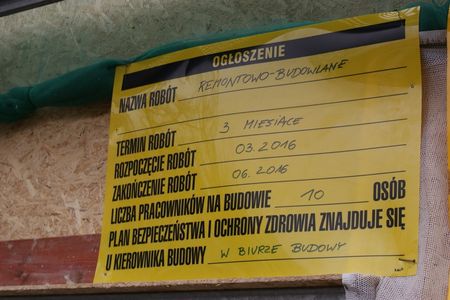 OGŁOSZENIE
NAZWA ROBÓT REMONTOWO-BUDOWLANE
TERMIN ROBÓT 3 MIESIĄCE
ROZPOCZĘCIE ROBÓT 03.2016
ZAKOŃCZENIE ROBÓT 06.2016
LICZBA PRACOWNIKÓW NA BUDOWIE 10 OSÓB
PLAN BEZPIECZEŃSTWA I OCHRONY ZDROWIA ZNAJDUJE SIĘ
U KIEROWNIKA BUDOWY W BIURZE BUDOWY